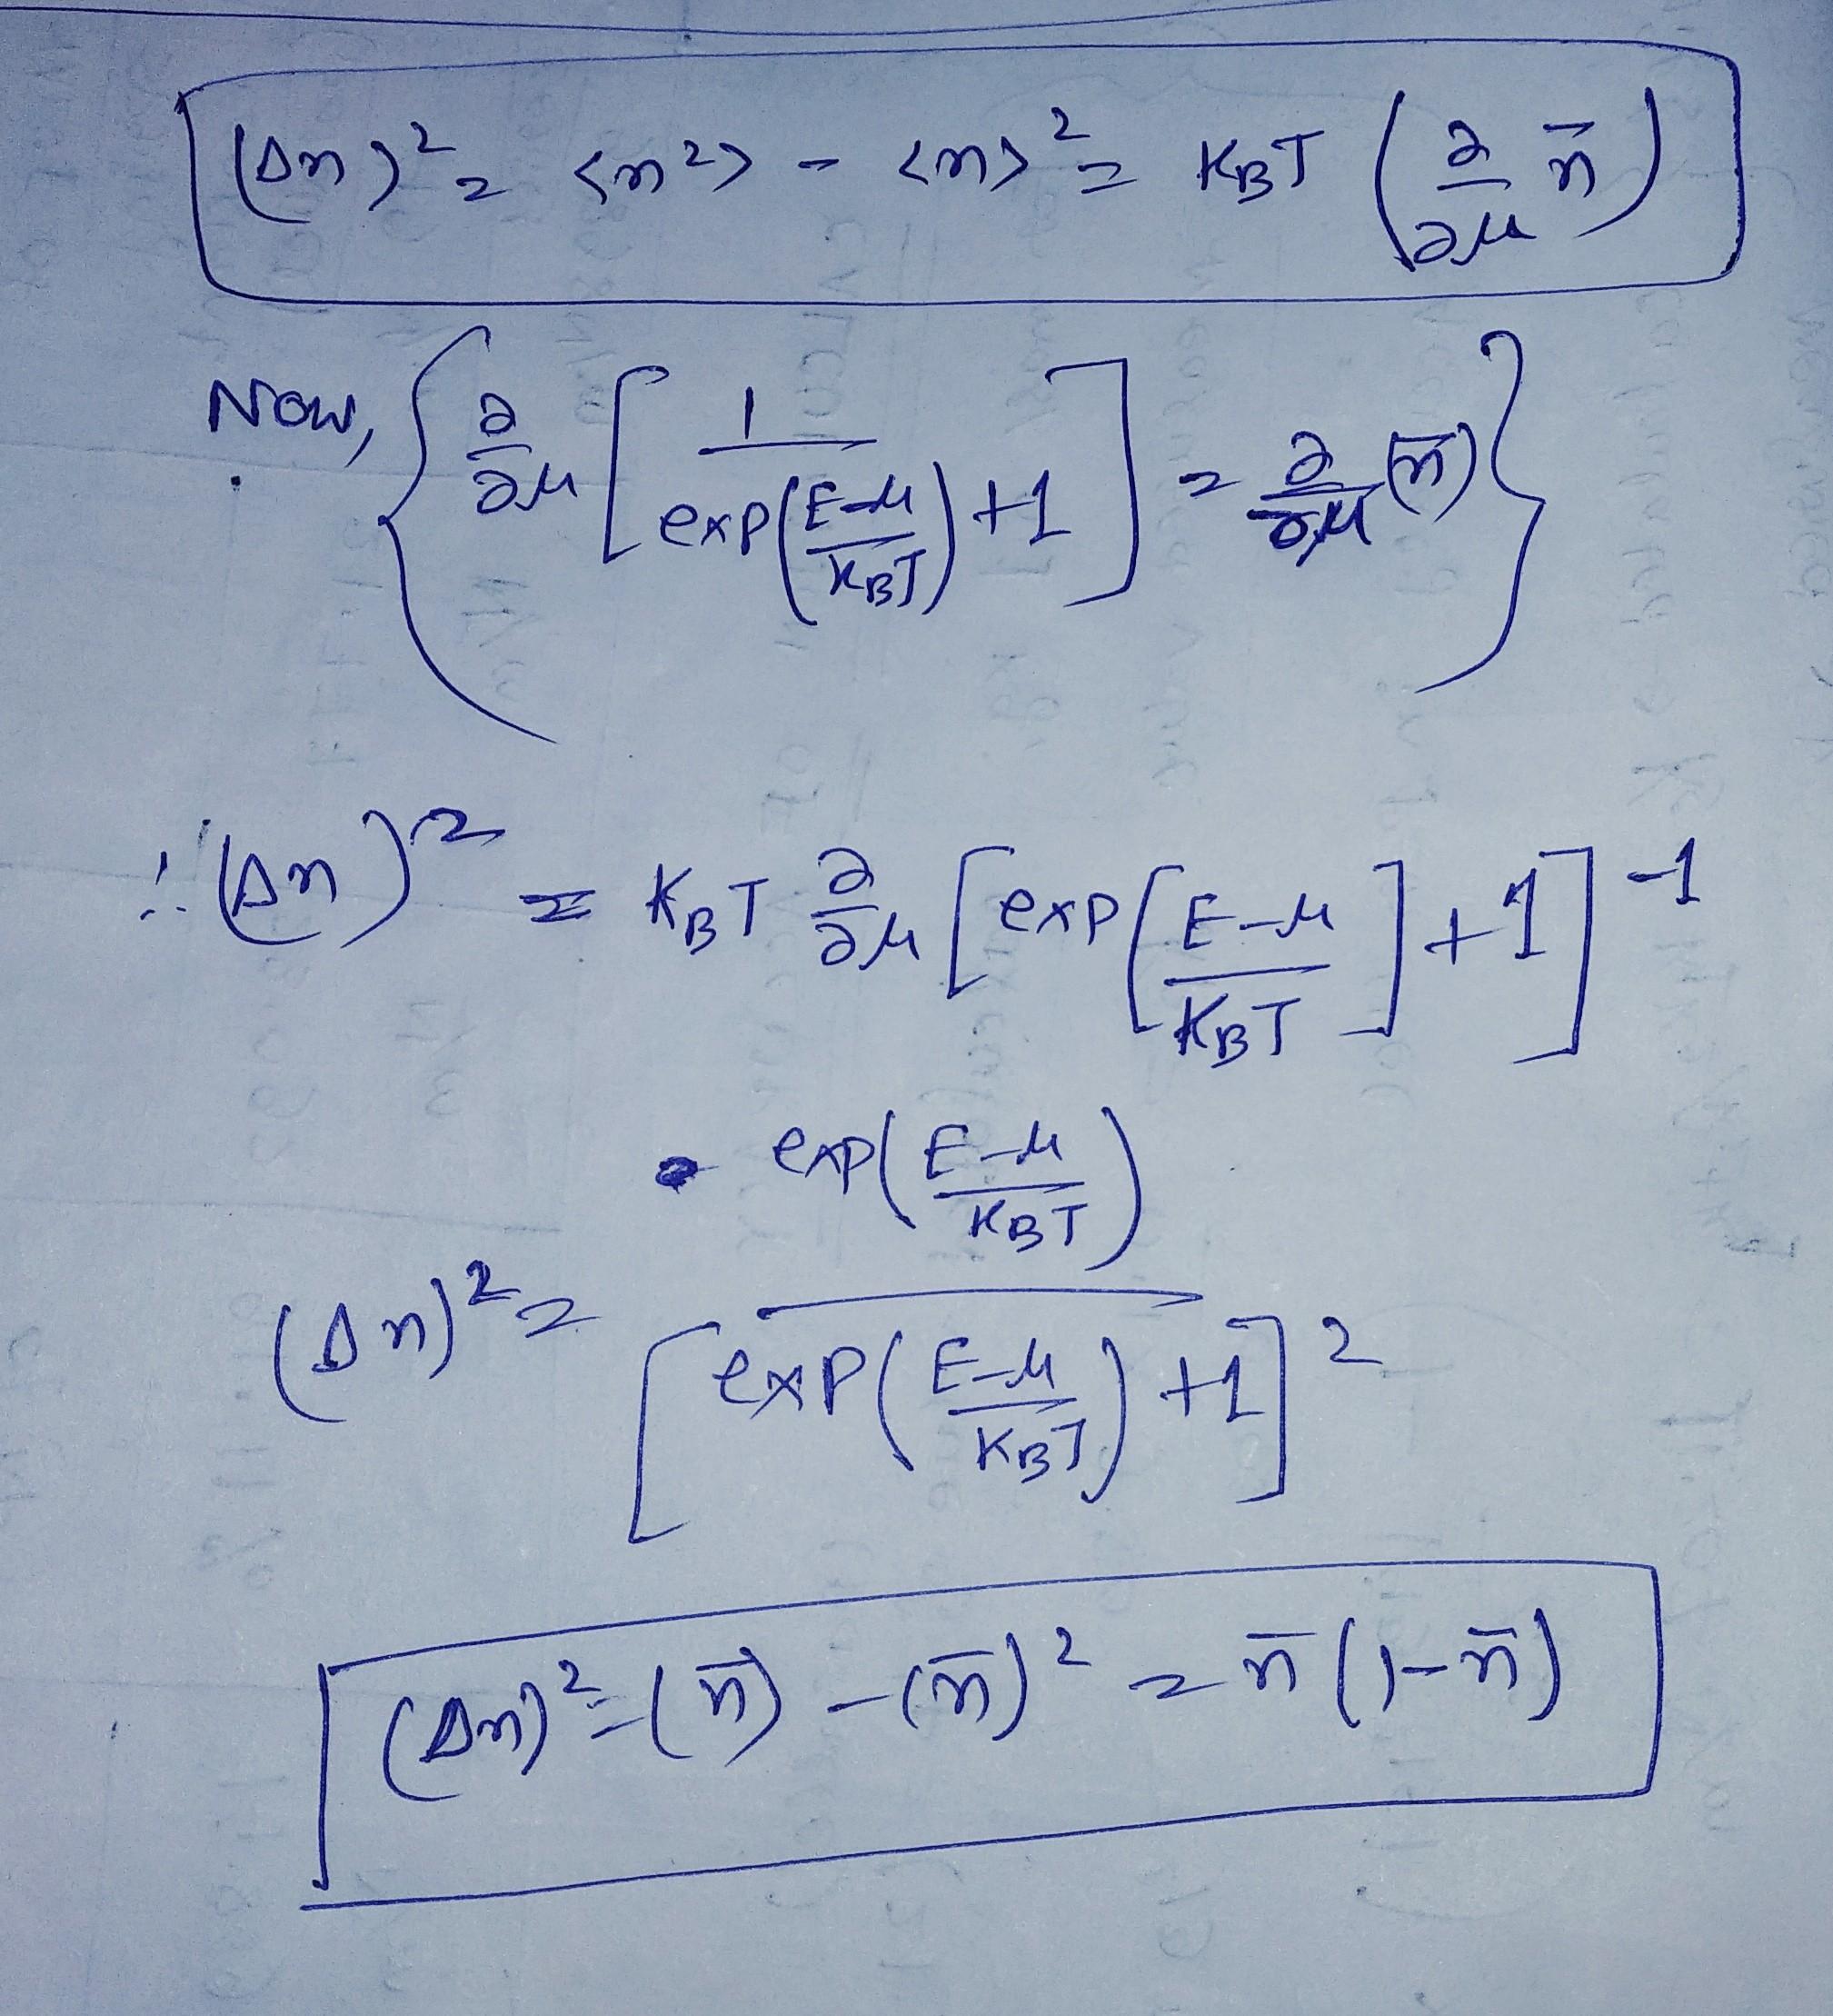 (Δn)² = <n²> - <n>² = K_BT (∂/∂μ n̄)
Now, { ∂/∂μ [ 1/(exp((E-μ)/K_BT) +1) ] = ∂/∂μ (n̄) }
∴ (Δn)² = K_BT ∂/∂μ [exp[(E-μ)/K_BT] +1]⁻¹
(Δn)² = exp((E-μ)/K_BT) / [exp((E-μ)/K_BT) +1]²
(Δn)² = (n̄) - (n̄)² = n̄ (1-n̄)